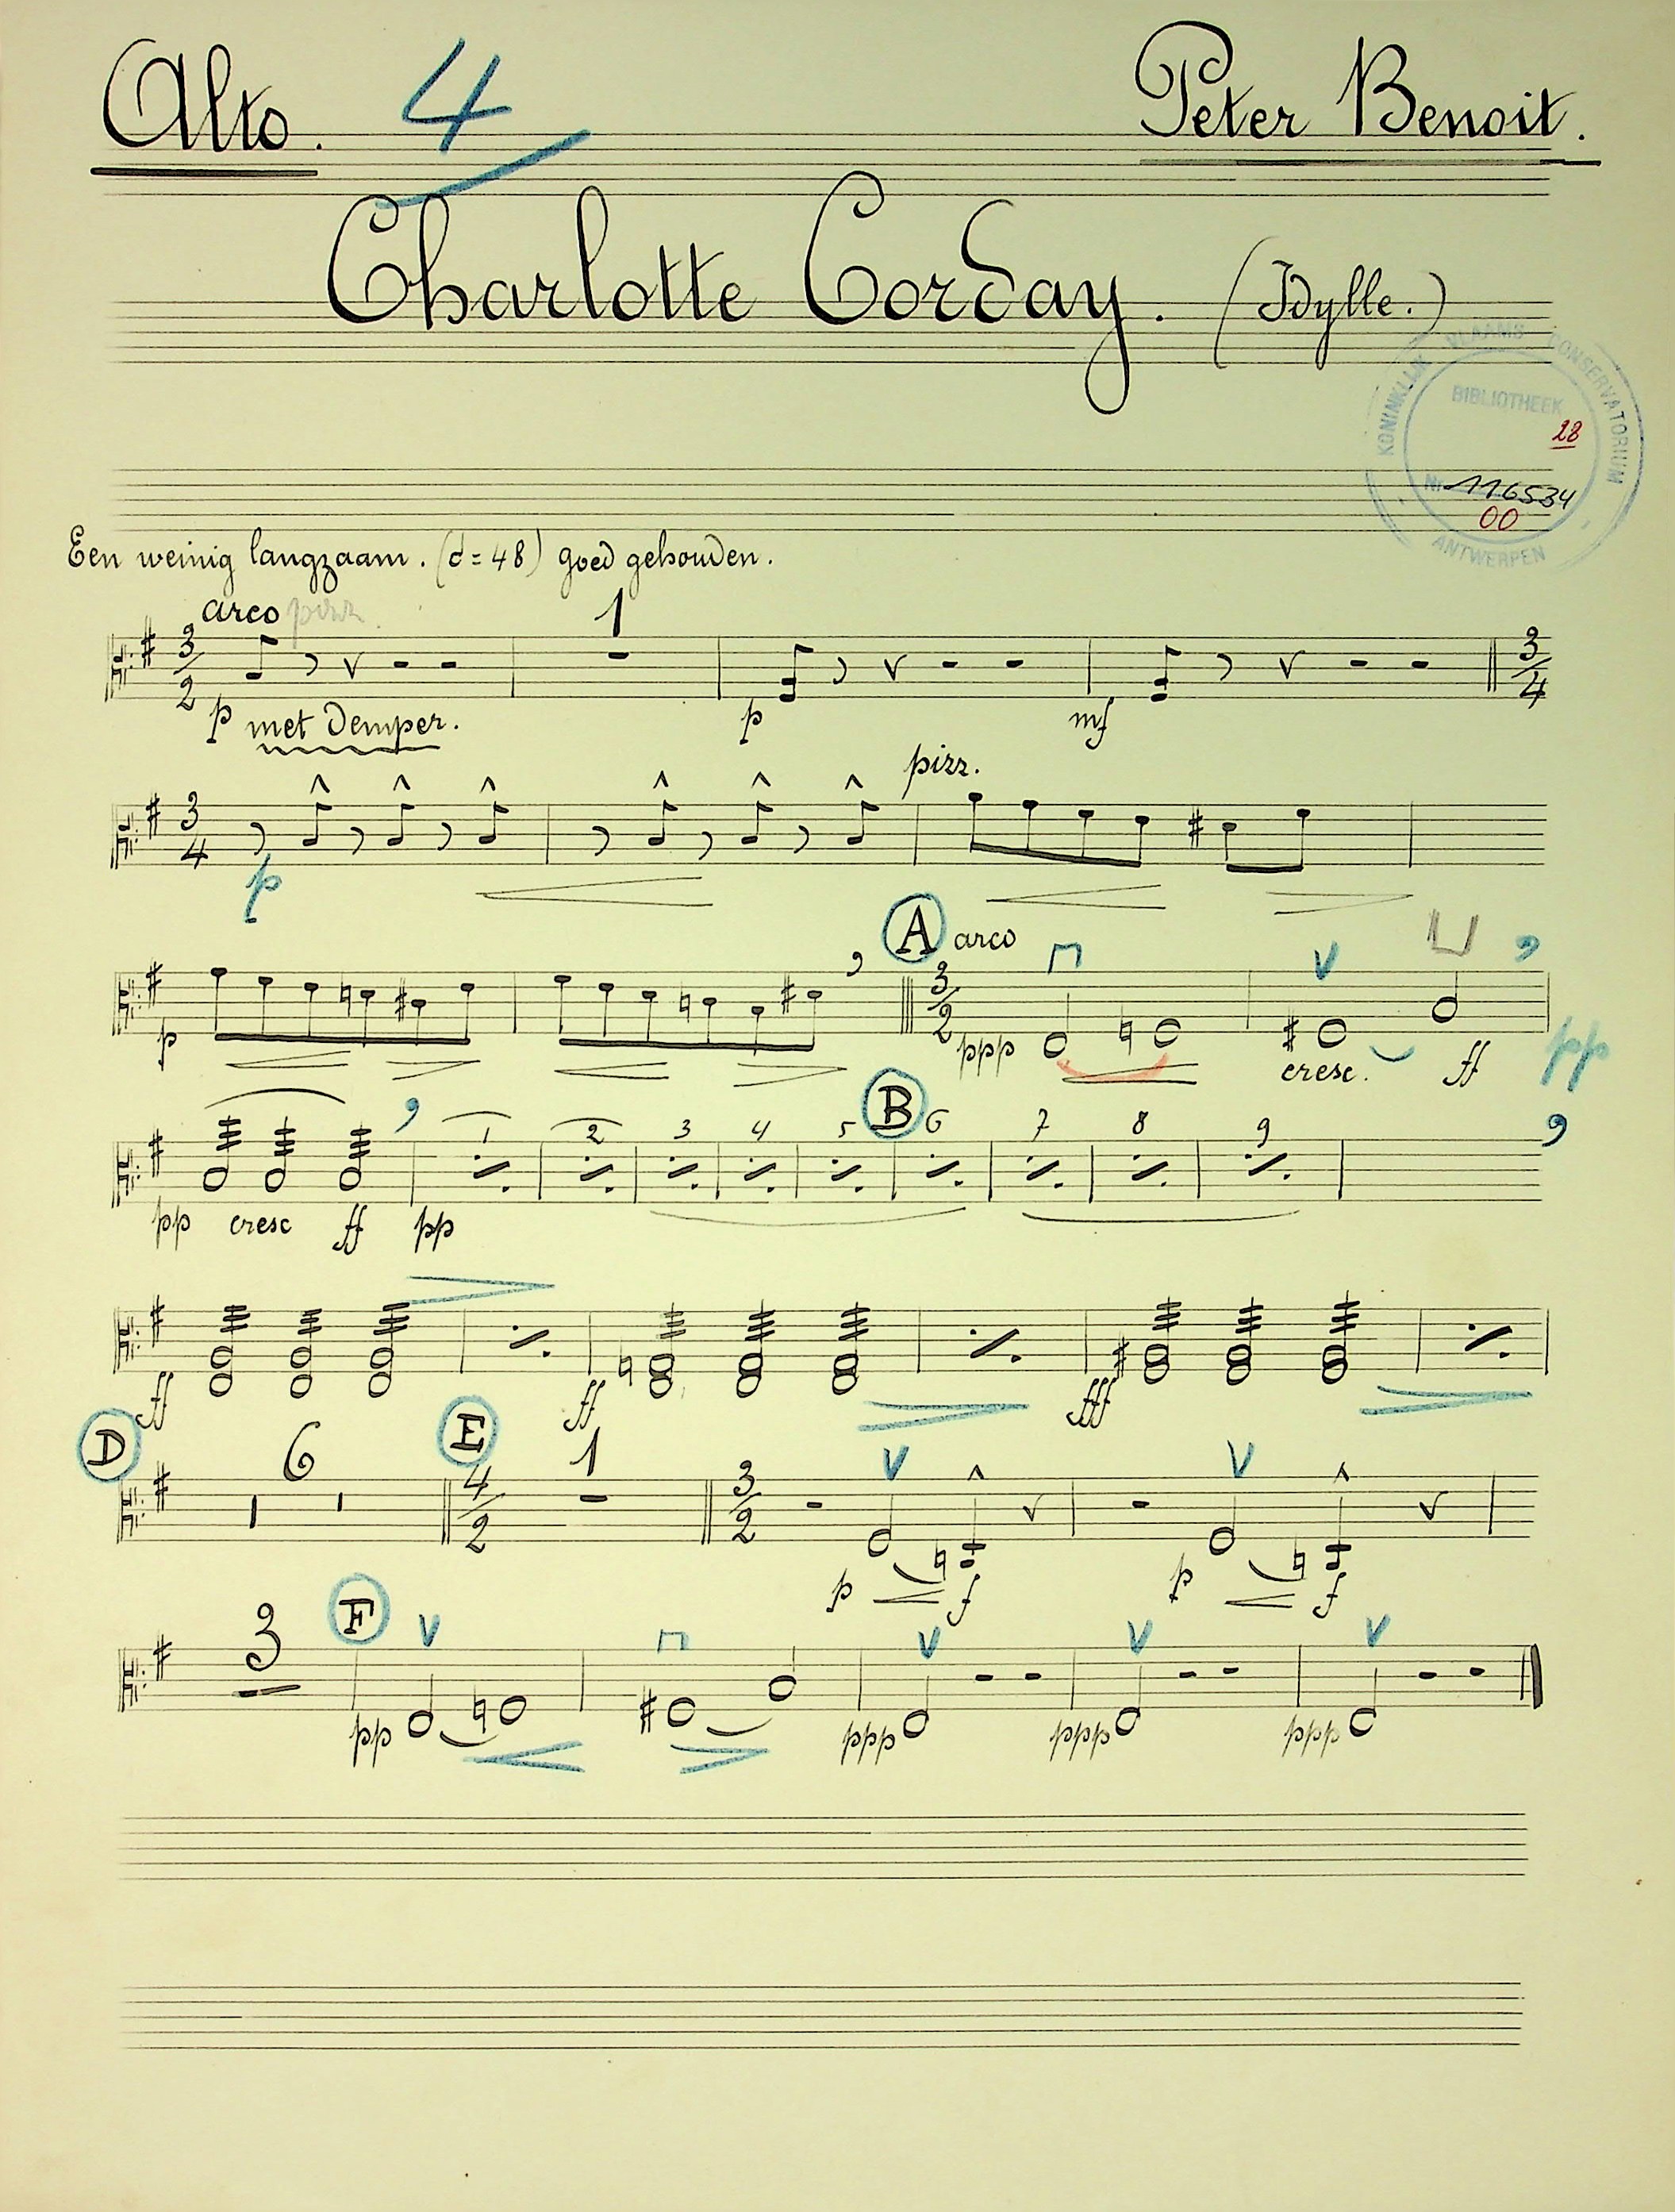 Alto. 4 Peter Benoit.
Charlotte Corday. (Idylle.)
KONINKLIJK VLAAMS CONSERVATORIUM
BIBLIOTHEEK
28
Nr 116534
00
ANTWERPEN
Een weinig langzaam. (d = 48) goed gehouden.
arco pizz. 1
3/2 3/4
p met Demper. p mf
pizz.
3/4
p
A arco
3/2
p ppp cresc. ff pp
B
1 2 3 4 5 6 7 8 9
pp cresc ff pp
ff ff fff
D 6 E 1
4/2 3/2
p f p f
3 F
pp ppp ppp ppp